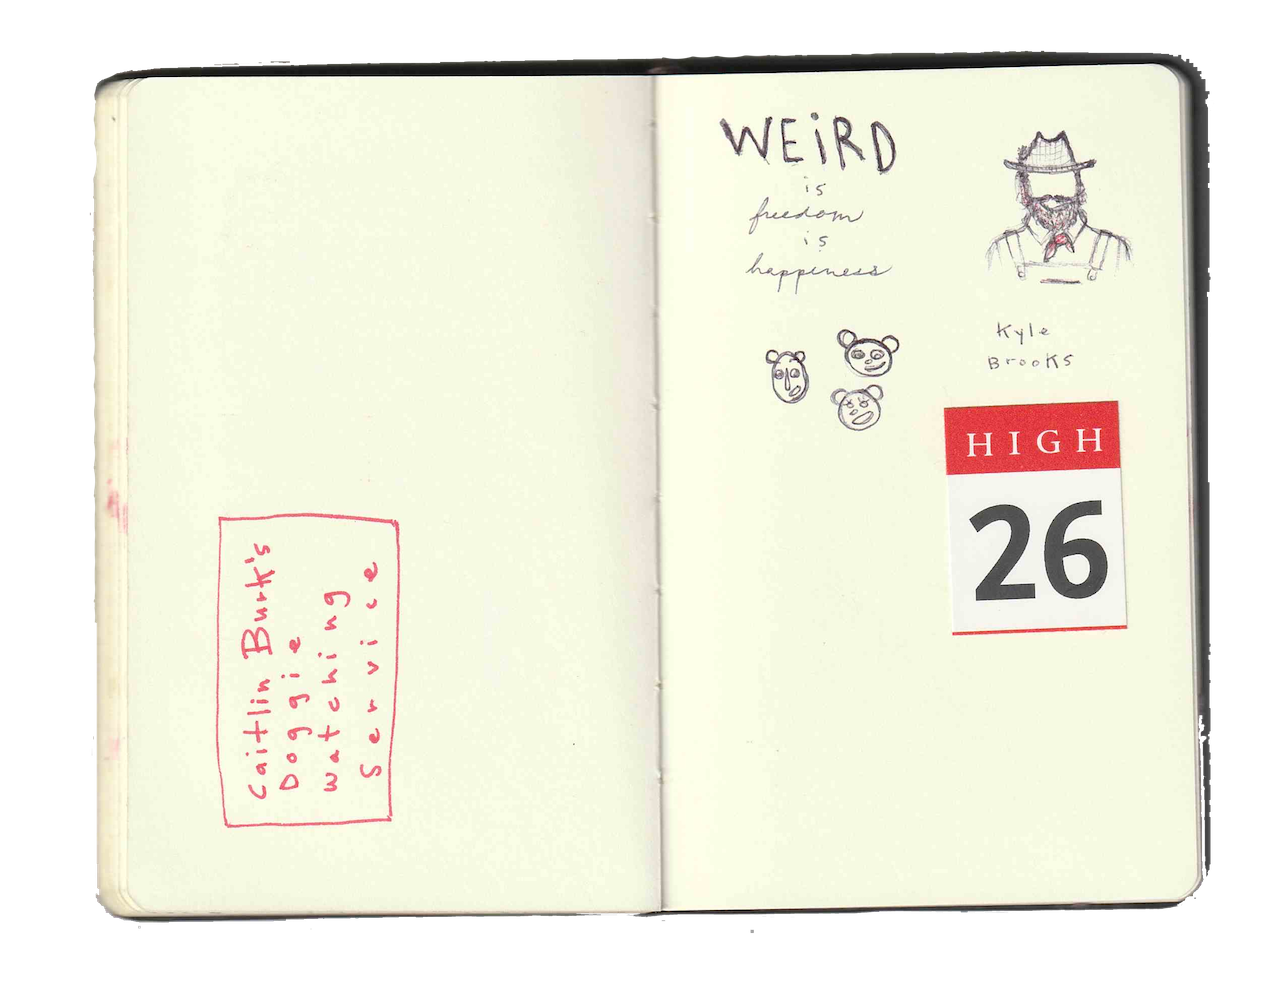 Caitlin Burk's
Doggie
watching
Service
WEiRD
is
freedom
is
happiness
Kyle
Brooks
HIGH
26